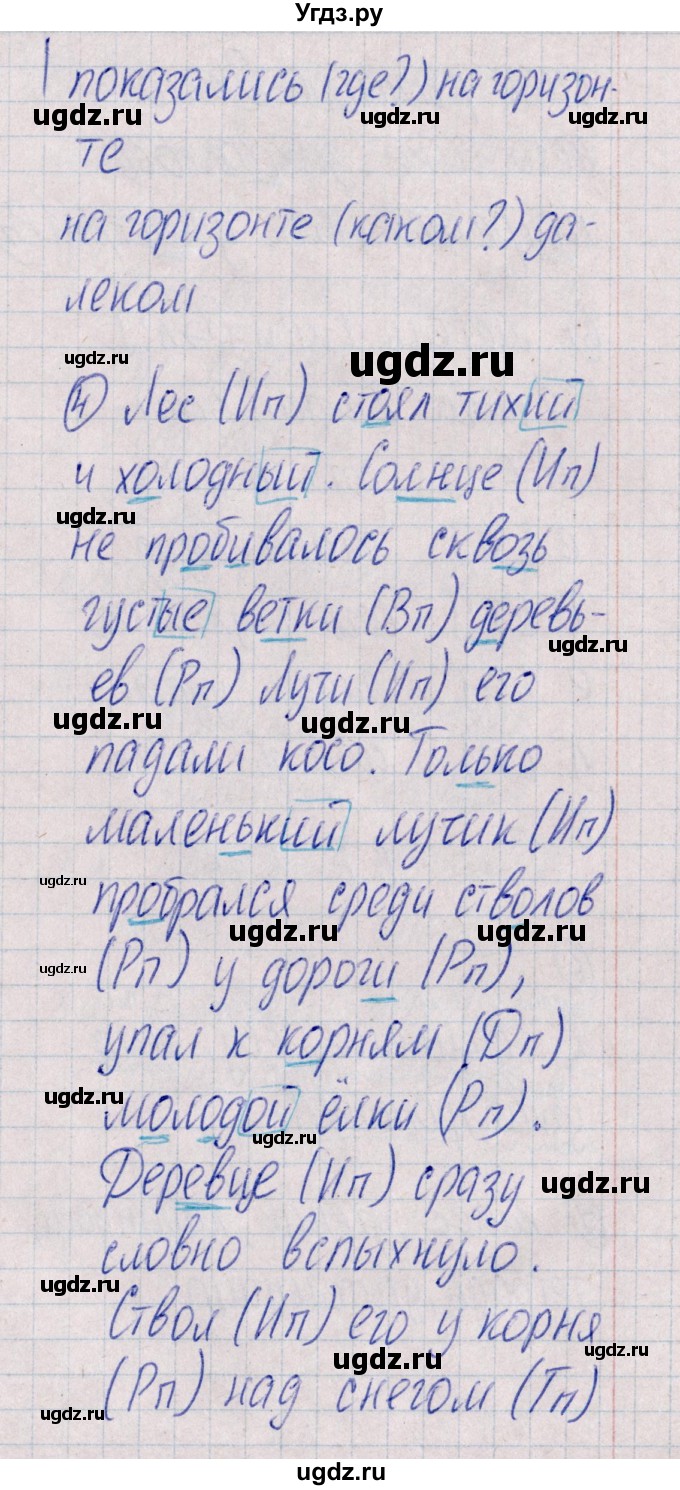 Угдз.ру
показались (где?) на горизон-
те
на горизонте (каком?) да-
леком
④ Лес (Ип) стоял тихий
и холодный. Солнце (Ип)
не пробивалось сквозь
густые ветки (Вп) деревь-
ев (Рп) Лучи (Ип) его
падали косо. Только
маленький лучик (Ип)
пробрался среди стволов
(Рп) у дороги (Рп),
упал к корням (Дп)
молодой ёлки (Рп).
Деревце (Ип) сразу
словно вспыхнуло.
Ствол (Ип) его у корня
(Рп) над снегом (Тп)
ugdz.ru